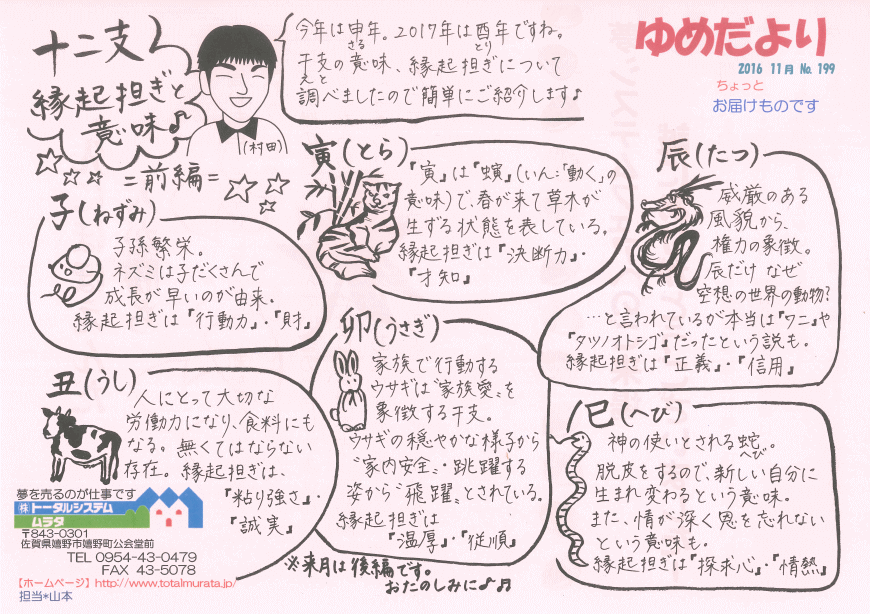 十二支
縁起担ぎと
意味♪
=前編=
(村田)
今年は申年。2017年は酉年ですね。
さる
とり
干支の意味、縁起担ぎについて
えと
調べましたので簡単にご紹介します♪
ゆめだより
2016 11月 No. 199
ちょっと
お届けものです
子(ねずみ)
子孫繁栄。
ネズミは子だくさんで
成長が早いのが由来。
縁起担ぎは『行動力』・『財』
丑(うし)
人にとって大切な
労働力になり、食料にも
なる。無くてはならない
存在。縁起担ぎは、
『粘り強さ』・
『誠実』
寅(とら)
『寅』は『螾』(いん:「動く」の
意味)で、春が来て草木が
生ずる状態を表している。
縁起担ぎは『決断力』・
『才知』
卯(うさぎ)
家族で行動する
ウサギは“家族愛”を
象徴する干支。
ウサギの穏やかな様子から
“家内安全”・跳躍する
姿から“飛躍”とされている。
縁起担ぎは
『温厚』・『従順』
辰(たつ)
威厳のある
風貌から、
権力の象徴。
辰だけ なぜ
空想の世界の動物?
…と言われているが本当は『ワニ』や
『タツノオトシゴ』だったという説も。
縁起担ぎは『正義』・『信用』
巳(へび)
神の使いとされる蛇。
へび
脱皮をするので、新しい自分に
生まれ変わるという意味。
また、情が深く恩を忘れない
という意味も。
縁起担ぎは『探求心』・『情熱』
※来月は後編です。
おたのしみに♪♫
夢を売るのが仕事です
㈱トータルシステム
ムラタ
〒843-0301
佐賀県嬉野市嬉野町公会堂前
TEL 0954-43-0479
FAX 43-5078
【ホームページ】http://www.totalmurata.jp/
担当*山本